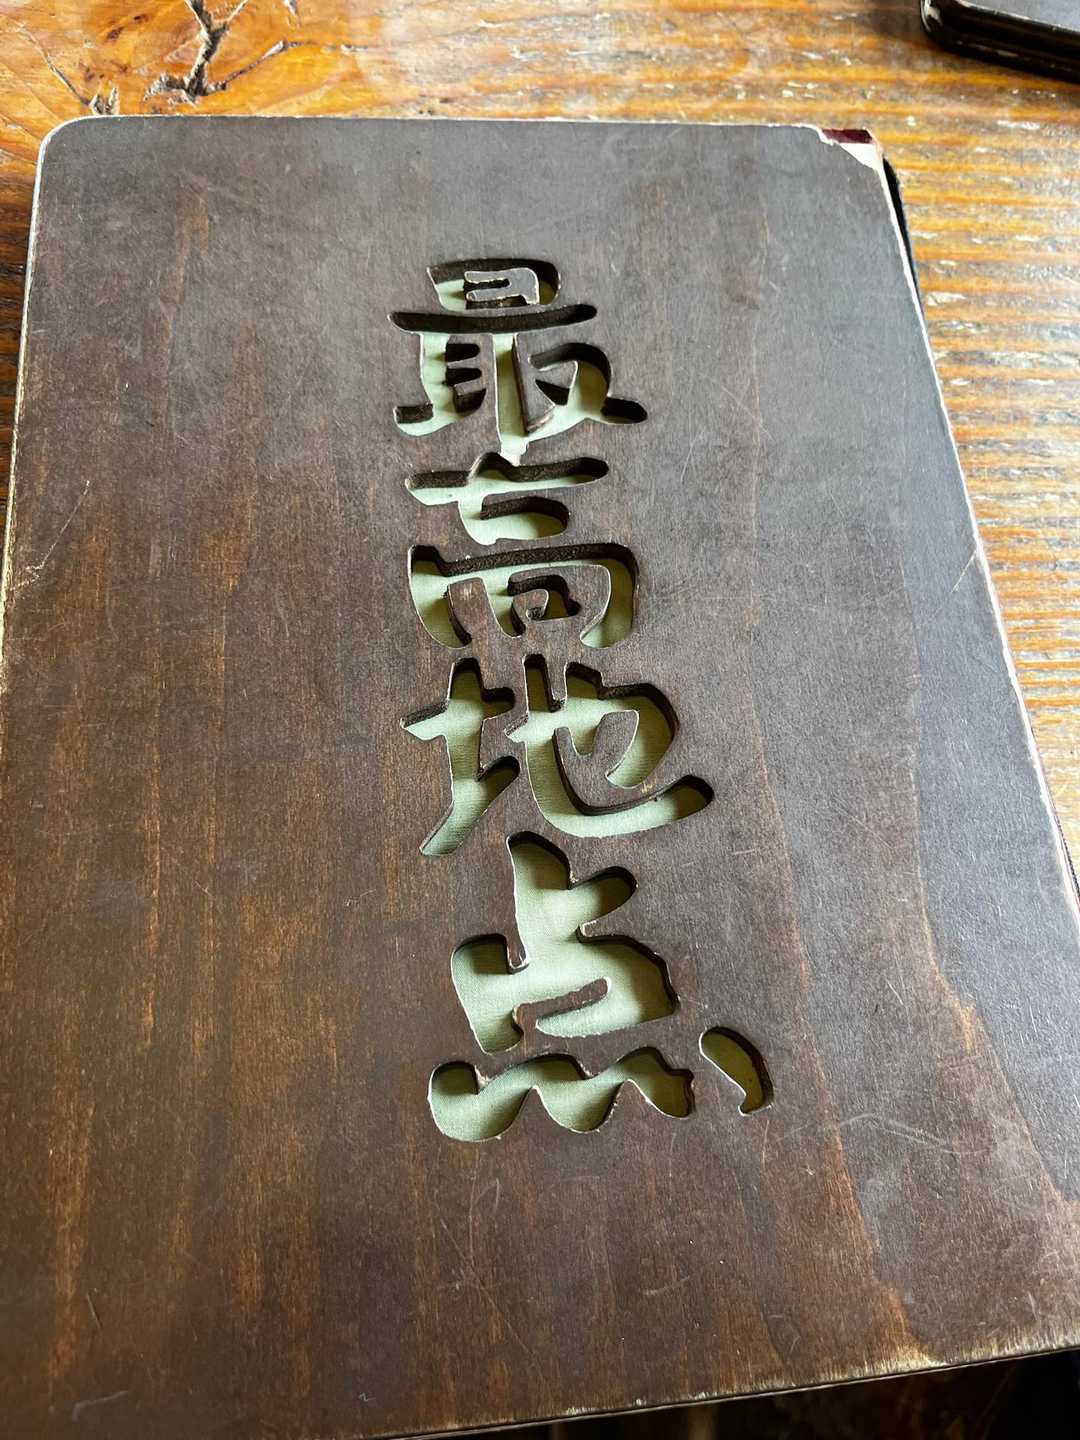 最高地点